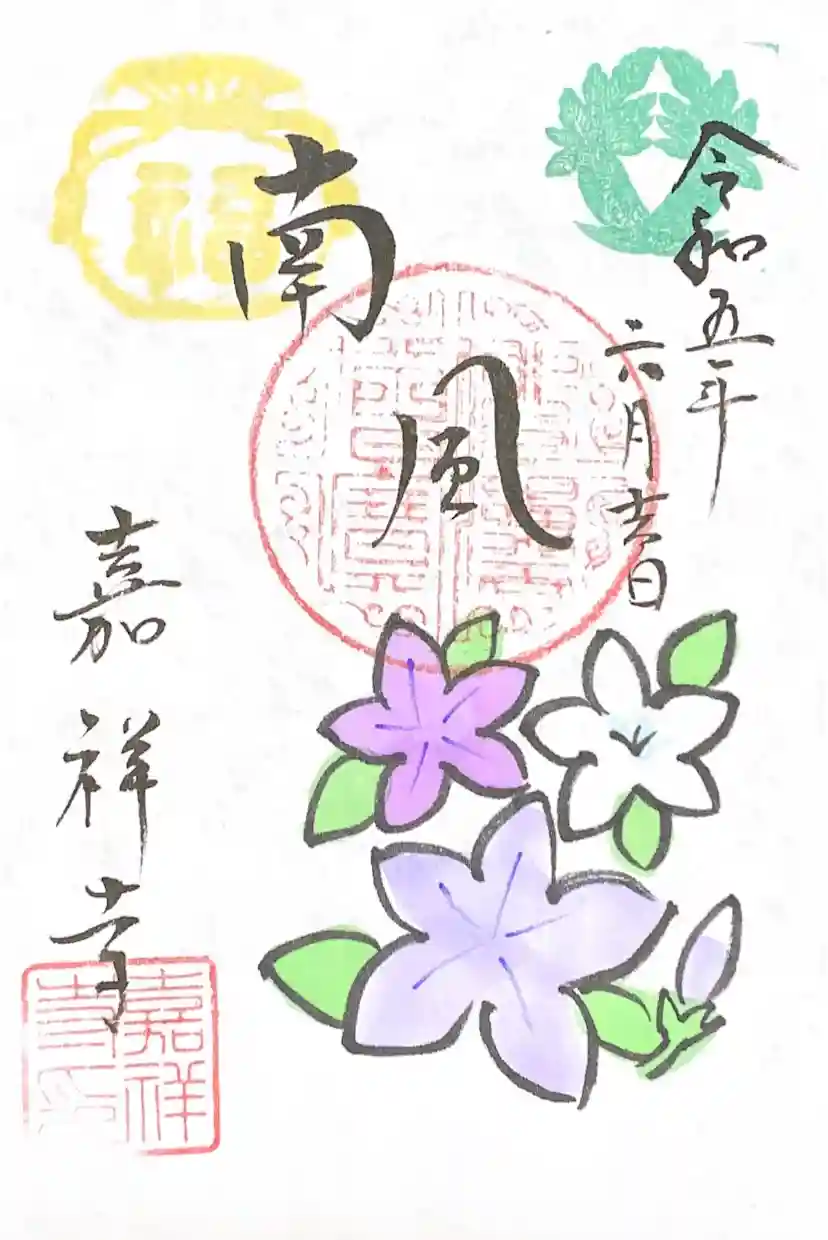 令和五年
六月吉日
南風
嘉祥寺
福
嘉祥
寺印